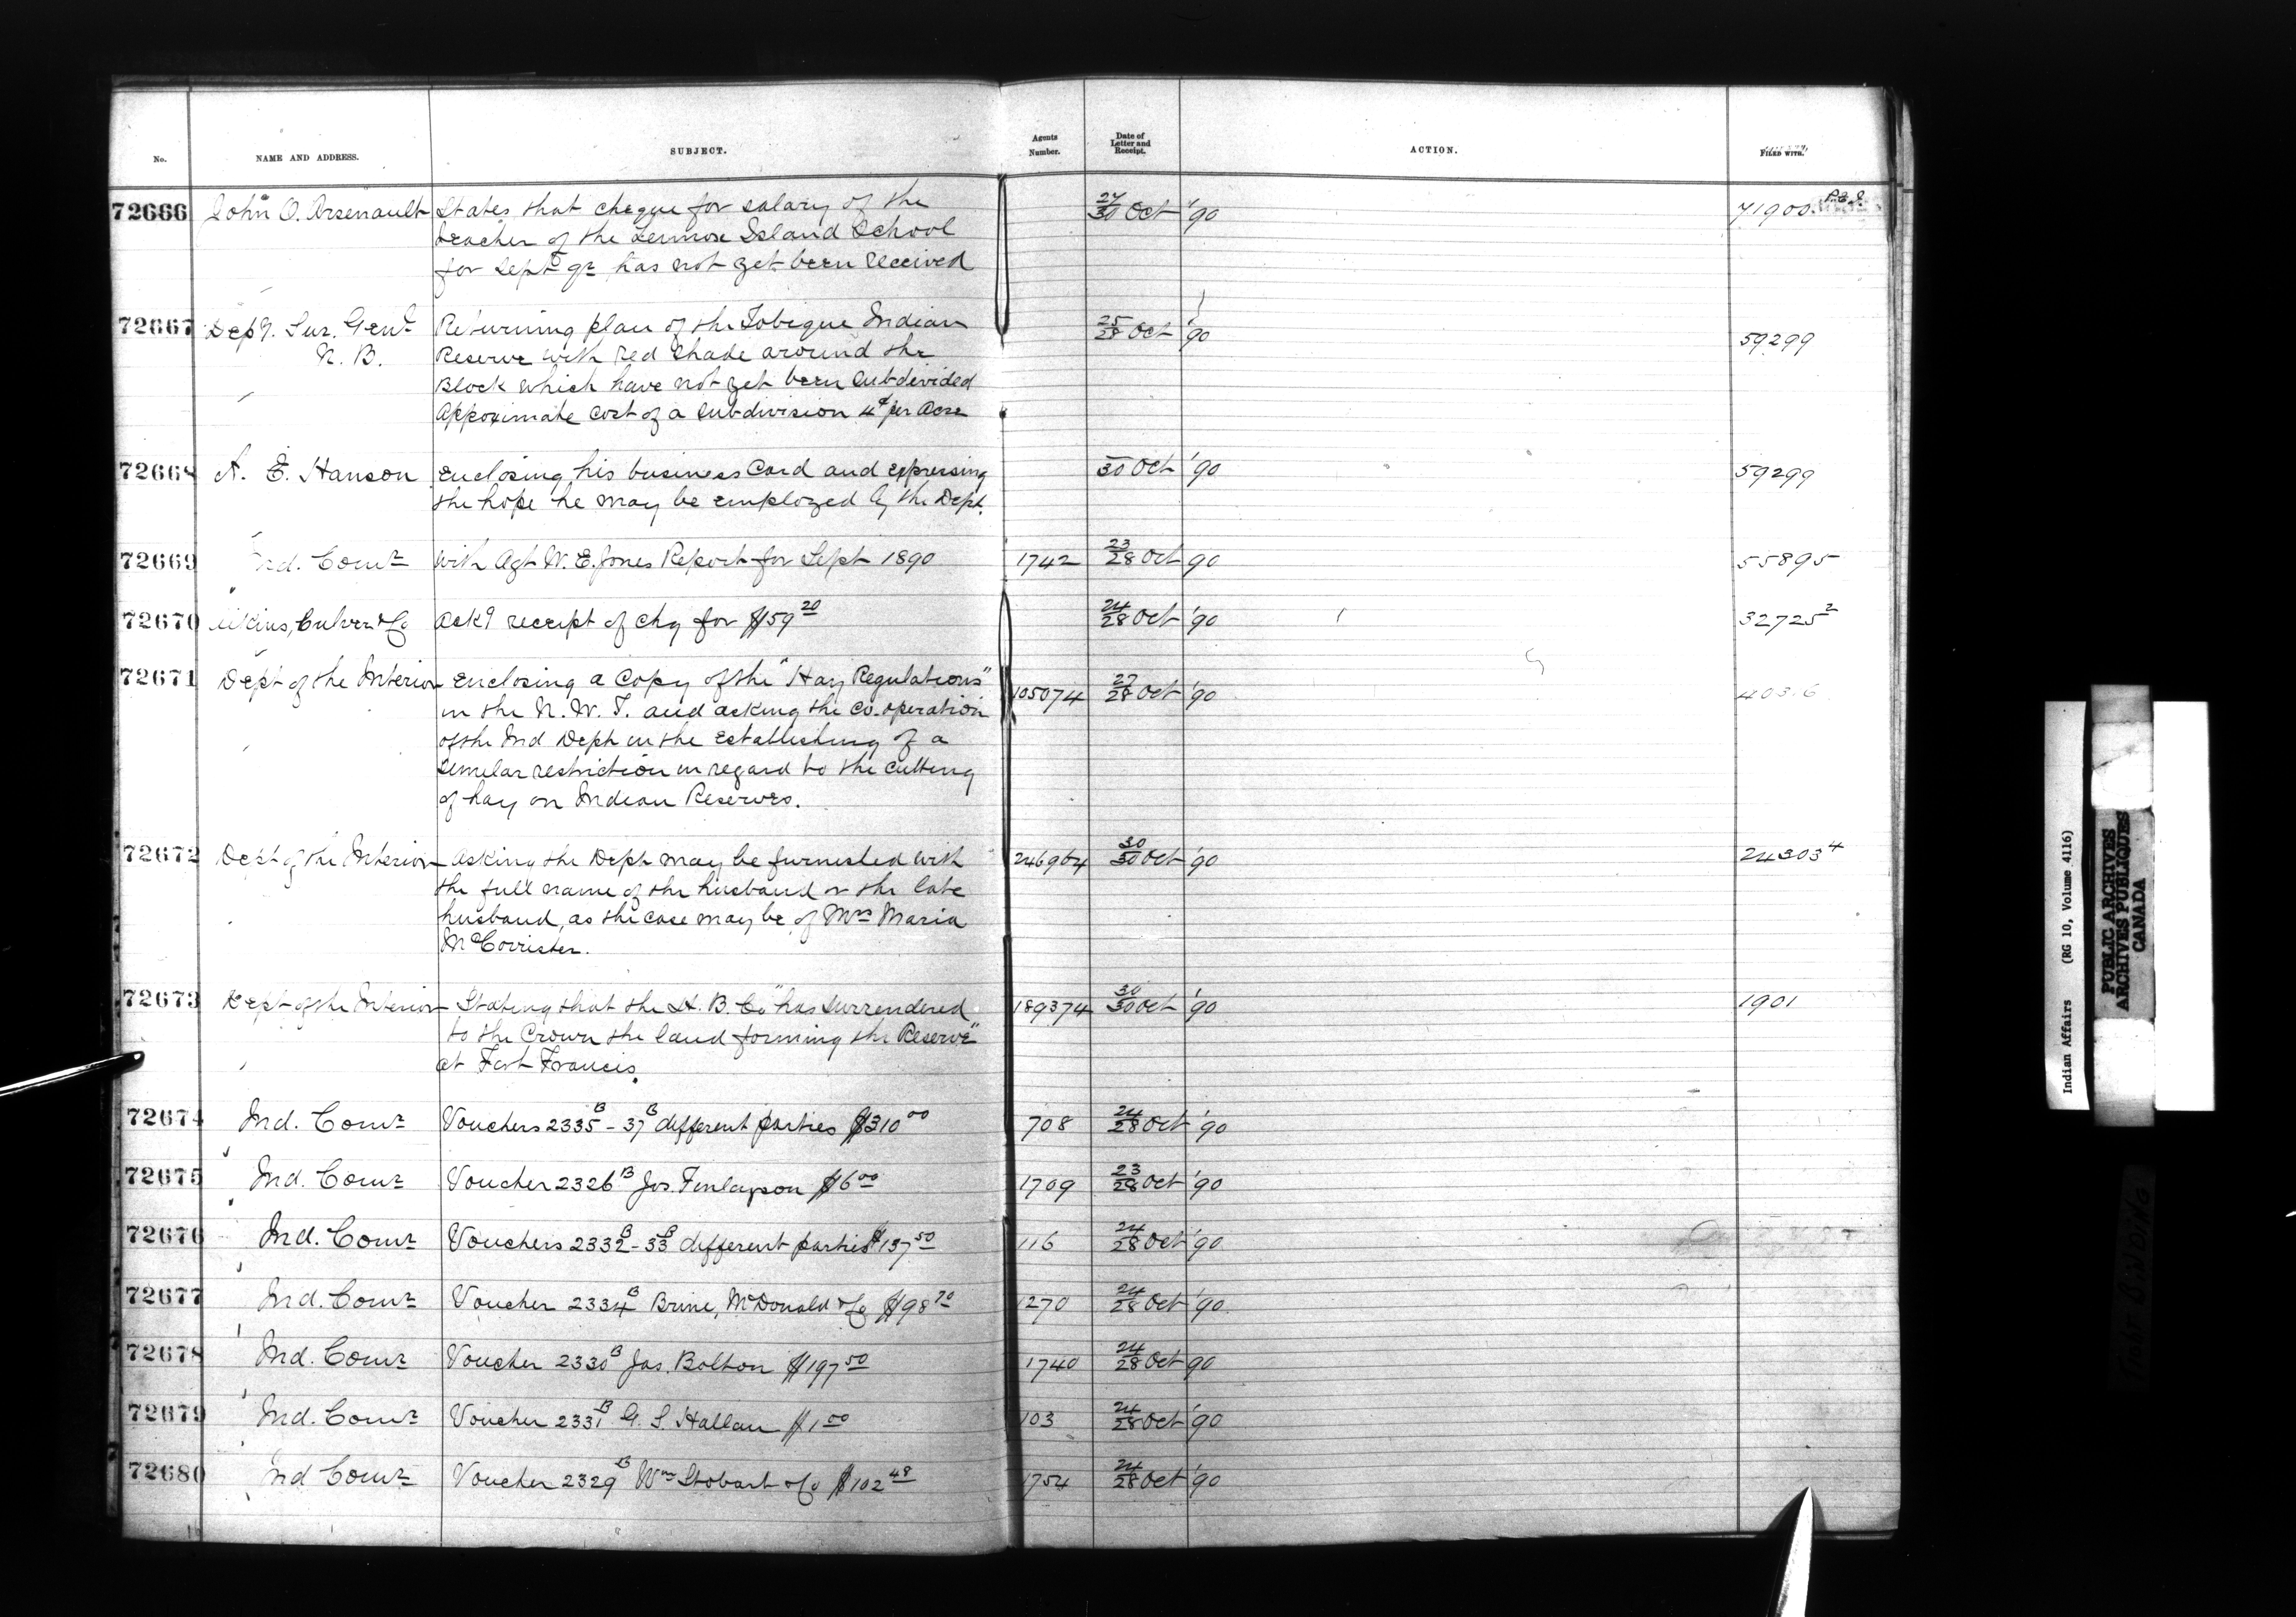 No. NAME AND ADDRESS. SUBJECT. Agents Number. Date of Letter and Receipt. ACTION. FILED WITH.
72666 John O. Arsenault States that cheque for salary of the 27/30 Oct '90 71900 P.E.I.
teacher of the Lennox Island School
for Sept qr has not yet been received
72667 Depy. Sur. Genl Returning plan of the Tobique Indian 25/28 Oct '90 59299
N. B. Reserve with red shade around the
Block which have not yet been subdivided
Approximate cost of a subdivision 4¢ per Acre
72668 A. E. Hanson Enclosing his business Card and expressing 30 Oct '90 59299
the hope he may be employed by the Dept.
72669 Ind. Comr With Agt W. E. Jones Report for Sept 1890 1742 23/28 Oct 90 55895
72670 Aikins, Culver & Co Ackg receipt of chq for $59 20 24/28 Oct '90 32725 2
72671 Dept of the Interior Enclosing a Copy of the "Hay Regulations" 105074 27/28 Oct '90
in the N. W. T. and asking the co-operation
of the Ind Dept in the establishing of a
similar restriction in regard to the cutting
of hay on Indian Reserves.
72672 Dept of the Interior Asking the Dept may be furnished with 246964 30/30 Oct '90 24303 4
the full name of the husband or the late
husband, as the case may be, of Mrs Maria
McCorrister.
72673 Dept of the Interior Stating that the H. B. Co "has surrendered 189374 30/30 Oct '90 1901
to the Crown the land forming the Reserve"
at Fort Francis.
72674 Ind. Comr Vouchers 2335 B - 37 B different parties $310 00 708 24/28 Oct '90
72675 Ind. Comr Voucher 2326 B Jos. Finlayson $6 00 1709 23/28 Oct '90
72676 Ind. Comr Vouchers 2332 B - 33 B different parties $137 50 116 24/28 Oct '90
72677 Ind. Comr Voucher 2334 B Brine, McDonald & Co $98 70 1270 24/28 Oct '90
72678 Ind. Comr Voucher 2330 B Jas. Bolton $197 50 1740 24/28 Oct 90
72679 Ind. Comr Voucher 2331 B G. S. Hallam $1 00 103 24/28 Oct '90
72680 Ind Comr Voucher 2329 B Wm Stobart & Co $102 48 1754 24/28 Oct '90
Indian Affairs (RG 10, Volume 4116)
PUBLIC ARCHIVES
ARCHIVES PUBLIQUES
CANADA
TIGHT BINDING